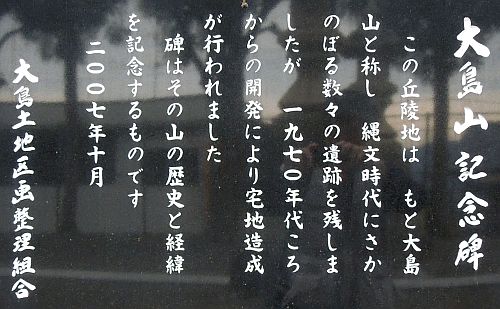 大島山記念碑
この丘陵地は もと大島
山と称し 縄文時代にさか
のぼる数々の遺跡を残しま
したが 一九七〇年代ころ
からの開発により宅地造成
が行われました
碑はその山の歴史と経緯
を記念するものです
二〇〇七年十月
大島土地区画整理組合